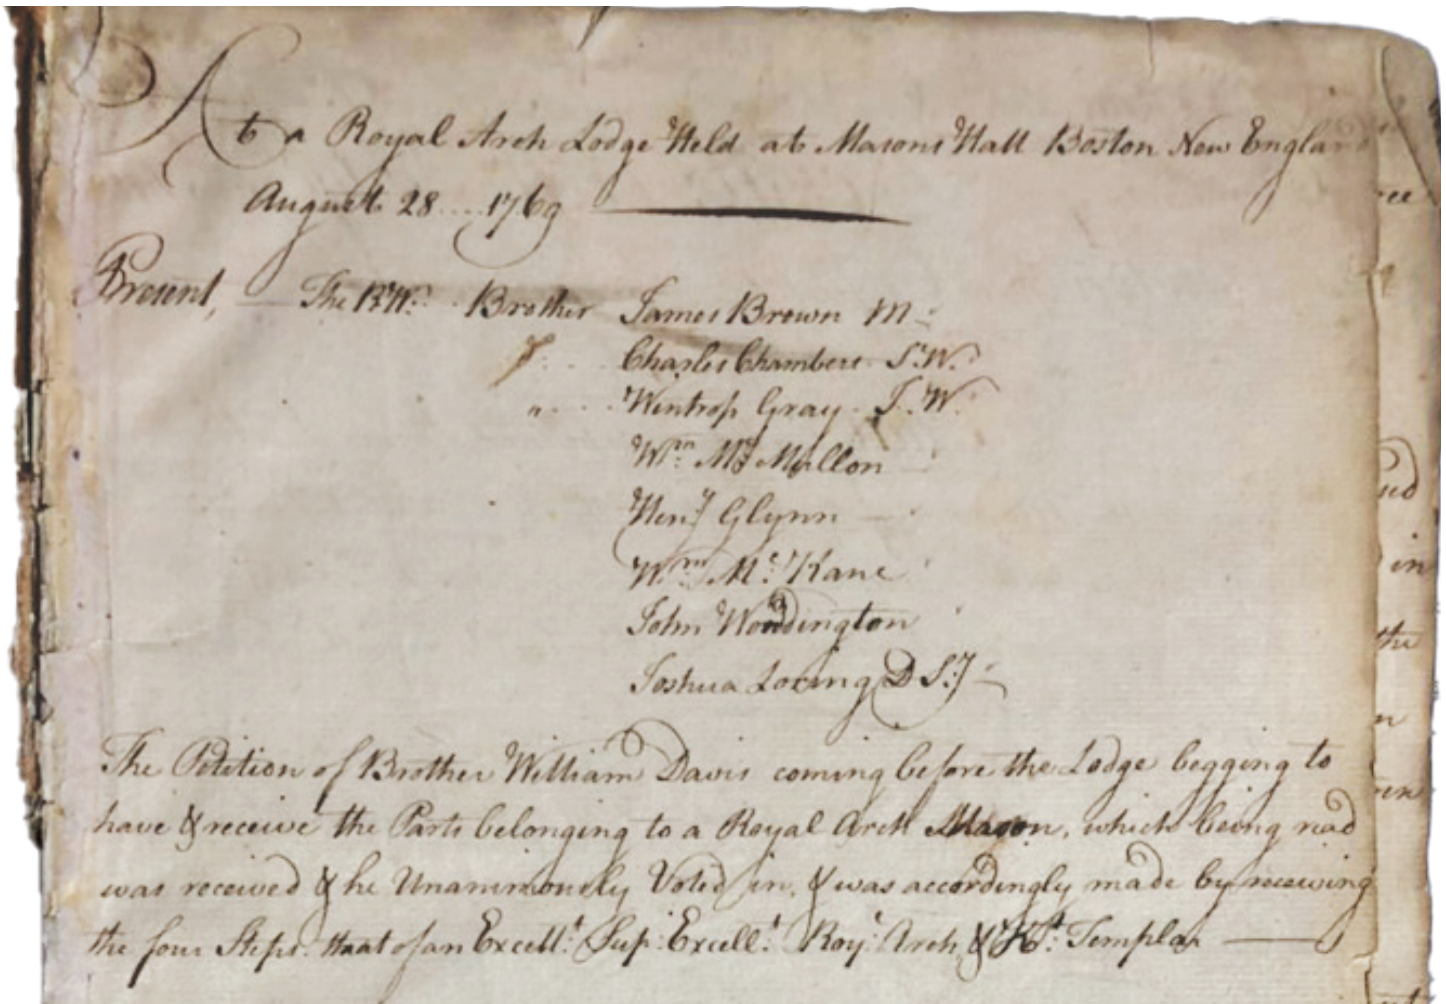 At a Royal Arch Lodge Held at Masons Hall Boston New England
August 28 .... 1769
Present, The R.W. Brother James Brown M
". . Charles Chambers S.W.
" . . . Wintrop Gray J.W.
Wm. Mc Mullon
Heny Glynn
Wm. Mc. Kane
John Woodington
Joshua Loring D S:y
The Petition of Brother William Davis coming before the Lodge begging to
have & receive the Parts belonging to a Royal Arch Mason, which being read
was received & he Unanimously Voted in, & was accordingly made by receiving
the four Steps. that of an Excellt. Sup. Excellt. Roy.l Arch, & Kt. Templar
ree
in
the